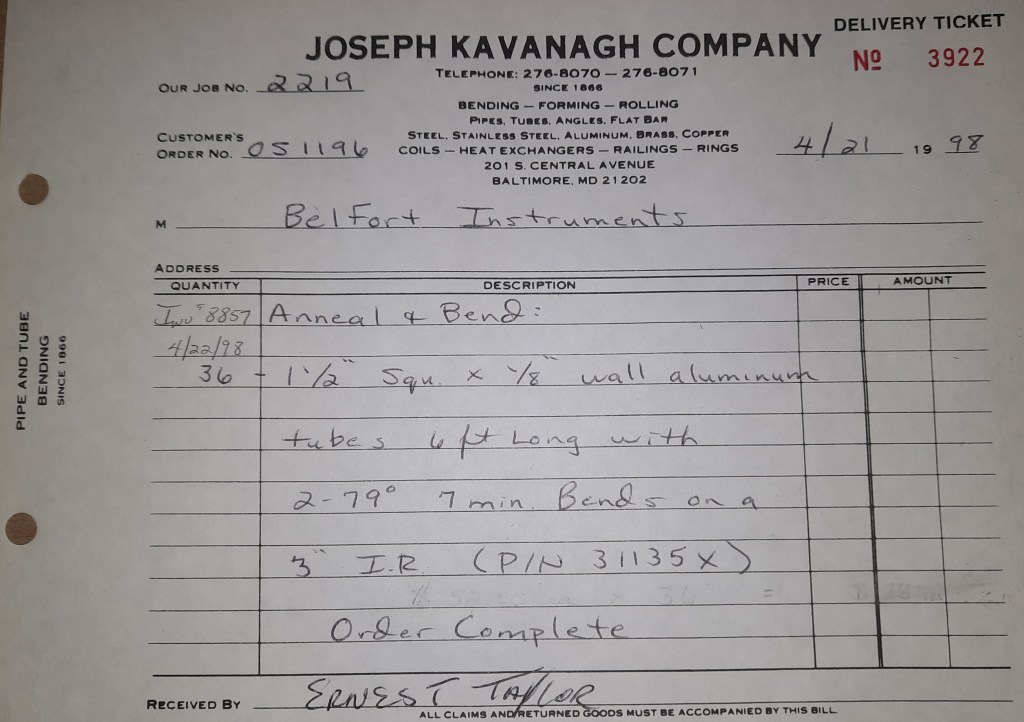 DELIVERY TICKET
JOSEPH KAVANAGH COMPANY
Nº 3922
TELEPHONE: 276-8070 — 276-8071
SINCE 1866
OUR JOB NO. 2219
BENDING — FORMING — ROLLING
PIPES, TUBES, ANGLES, FLAT BAR
STEEL, STAINLESS STEEL, ALUMINUM, BRASS, COPPER
CUSTOMER'S
ORDER NO. 051196
COILS — HEAT EXCHANGERS — RAILINGS — RINGS
4/21 19 98
201 S. CENTRAL AVENUE
BALTIMORE, MD 21202
M Belfort Instruments
ADDRESS
QUANTITY DESCRIPTION PRICE AMOUNT
Inv # 8857 Anneal & Bend:
4/22/98
36 - 1 1/2" Squ. x 1/8" wall aluminum
tubes 6 ft Long with
2-79° 7 min. Bends on a
3" I.R. (P/N 31135X)
36 =
Order Complete
RECEIVED BY ERNEST TAYLOR
ALL CLAIMS AND RETURNED GOODS MUST BE ACCOMPANIED BY THIS BILL
PIPE AND TUBE
BENDING
SINCE 1866